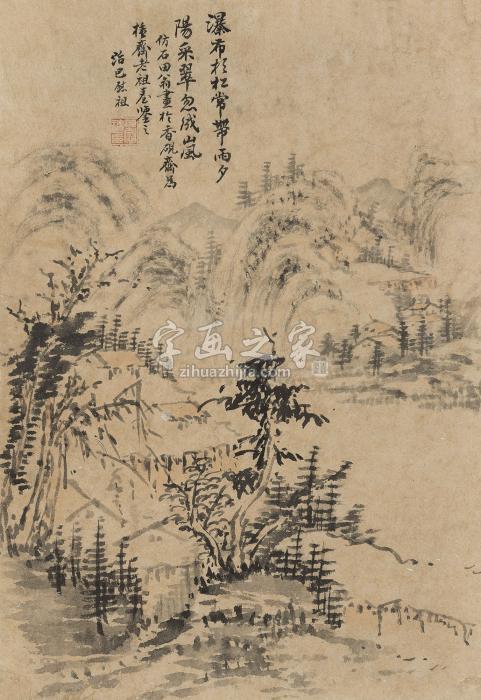 瀑布杉松常帶雨夕
陽采翠忽成嵐
仿石田翁畫於香硯齋為
齋老祖臺鑒之
治
祖
字画之家
www.zihuazhijia.com